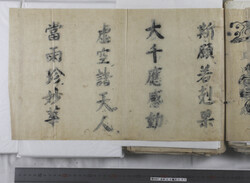 斯願若剋果
大千應感動
虛空諸天人
當雨珍妙華